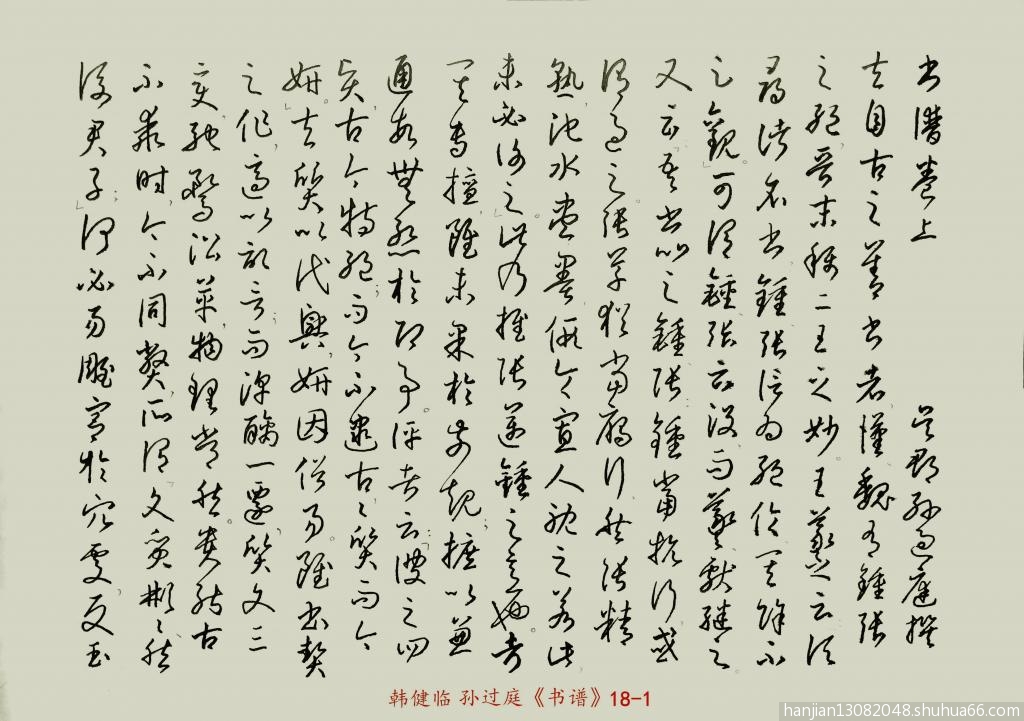 書譜卷上 吳郡孫過庭撰
夫自古之善書者漢魏有鍾張
之絕晉末稱二王之妙王羲之云頃
尋諸名書鍾張信為絕倫其餘不
足觀可謂鍾張云沒而羲獻繼之
又云吾書比之鍾張鍾當抗行或
謂過之張草猶當雁行然張精
熟池水盡墨假令寡人耽之若此
未必謝之此乃推張邁鍾之意也考
其專擅雖未果於前規摭以兼
通故無慚於即事評者云彼之四
賢古今特絕而今不逮古〻質而今
妍夫質以代興妍因俗易雖書契
之作適以記言而淳醨一遷質文三
變馳鶩沿革物理常然貴能古
不乖時今不同弊所謂文質彬〻然
後君子何必易雕宮於穴處反玉
韩健临 孙过庭《书谱》18-1
hanjian13082048.shuhua66.com